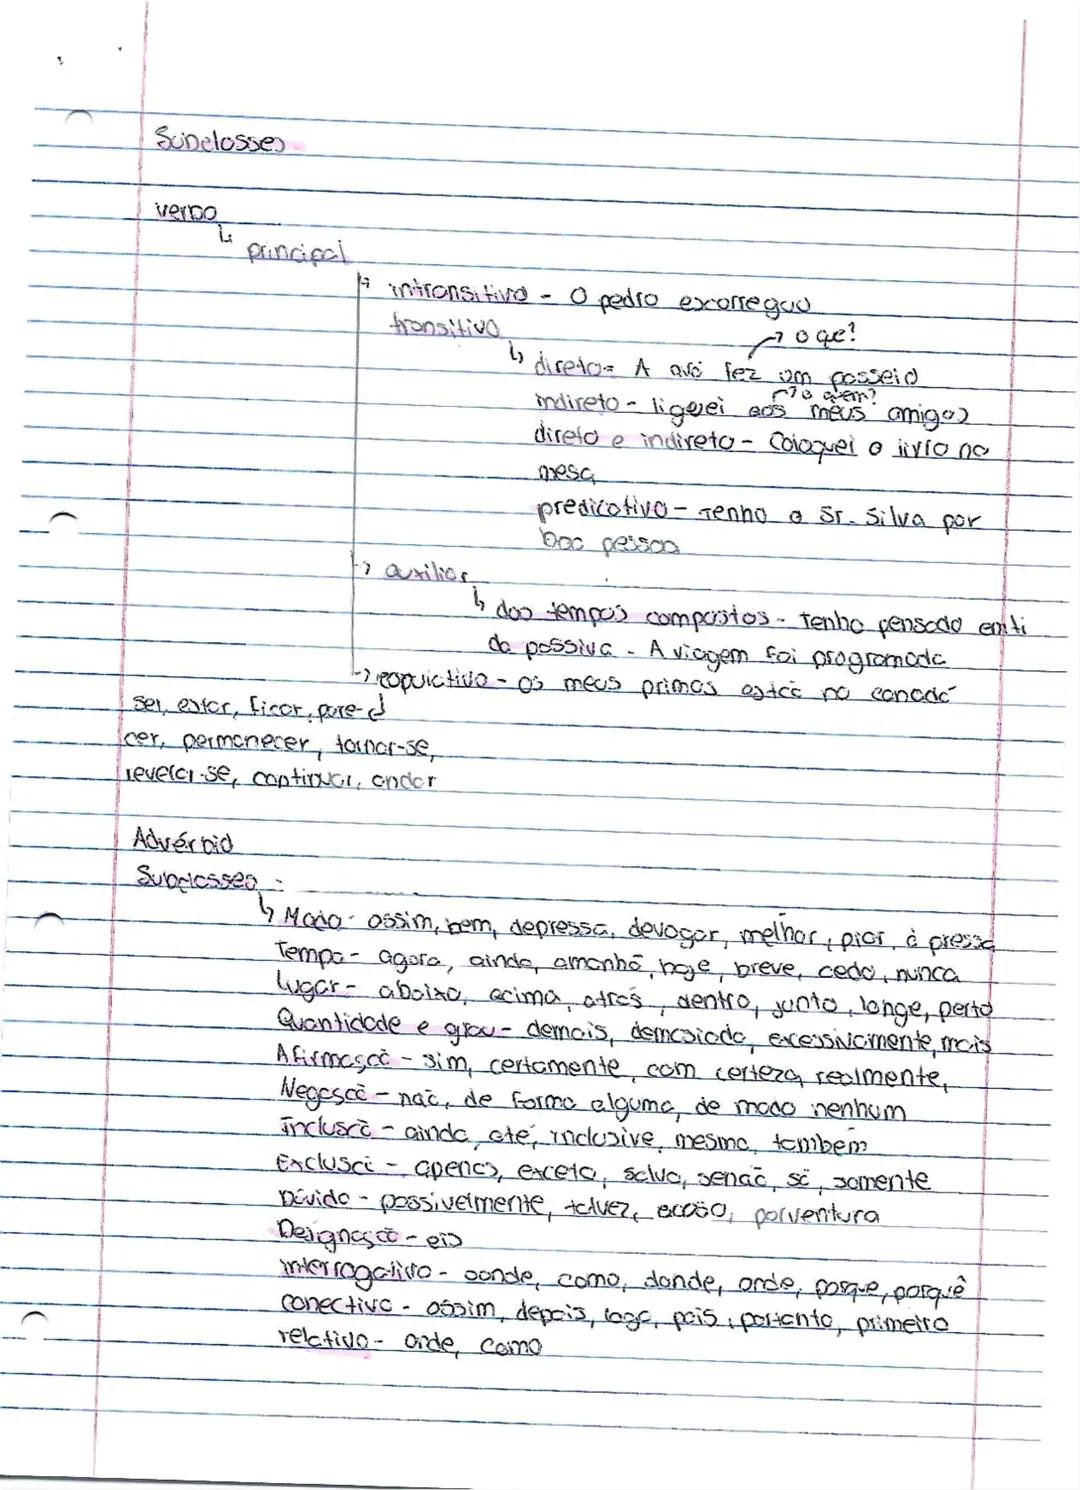 Subclasses
verbo
↳ principal
↳ intransitivo - O pedro escorregou
transitivo
→ o qe?
↳ direto - A avó fez um passeio
→ a quem?
indireto - liguei aos meus amigos
direto e indireto - Coloquei o livro na
mesa
predicativo - Tenho o Sr. Silva por
boa pessoa
→ auxiliar
↳ dos tempos compostos - Tenho pensado em ti
da passiva - A viagem foi programada
→ copulativo - os meus primos estão no canadá
ser, estar, ficar, pare-
cer, permanecer, tornar-se,
revelar-se, continuar, andar
Advérbio
Subclasses :
↳ Modo - assim, bem, depressa, devagar, melhor, pior, à pressa
Tempo - agora, ainda, amanhã, hoje, breve, cedo, nunca
Lugar - abaixo, acima, atrás, dentro, junto, longe, perto
Quantidade e grau - demais, demasiado, excessivamente, mais
Afirmação - sim, certamente, com certeza, realmente,
Negação - não, de forma alguma, de modo nenhum
Inclusão - ainda, até, inclusive, mesmo, também
Exclusão - apenas, exceto, salvo, senão, só, somente
Dúvida - possivelmente, talvez, acaso, porventura
Designação - eis
interrogativo - aonde, como, donde, onde, porque, porquê
conectivo - assim, depois, logo, pois, portanto, primeiro
relativo - onde, como